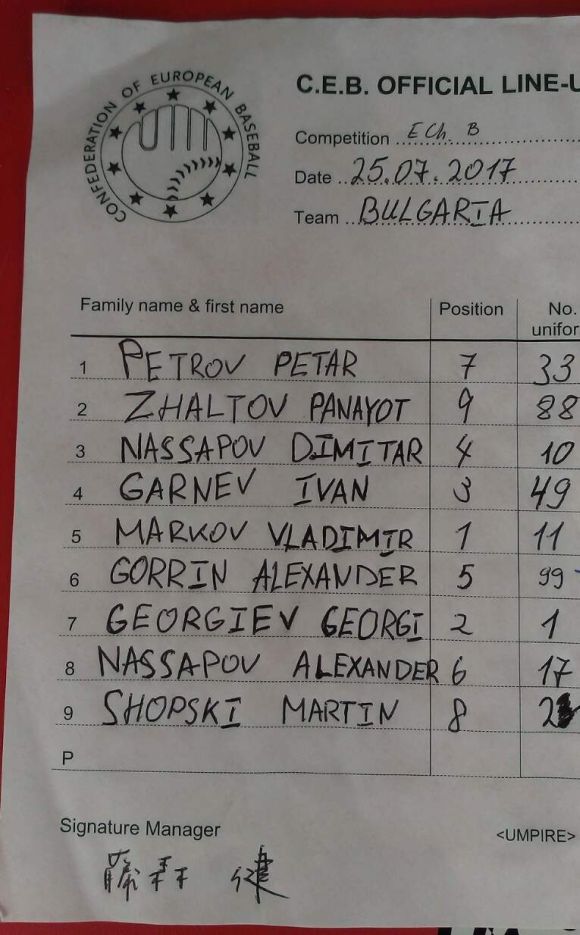 CONFEDERATION OF EUROPEAN BASEBALL
C.E.B. OFFICIAL LINE-U
Competition ECh. B
Date 25.07.2017
Team BULGARIA
Family name & first name Position No.
unifor
1 PETROV PETAR 7 33
2 ZHALTOV PANAYOT 9 88
3 NASSAPOV DIMITAR 4 10
4 GARNEV IVAN 3 49
5 MARKOV VLADIMIR 1 11
6 GORRIN ALEXANDER 5 99
7 GEORGIEV GEORGI 2 1
8 NASSAPOV ALEXANDER 6 17
9 SHOPSKI MARTIN 8
P
Signature Manager <UMPIRE>
健